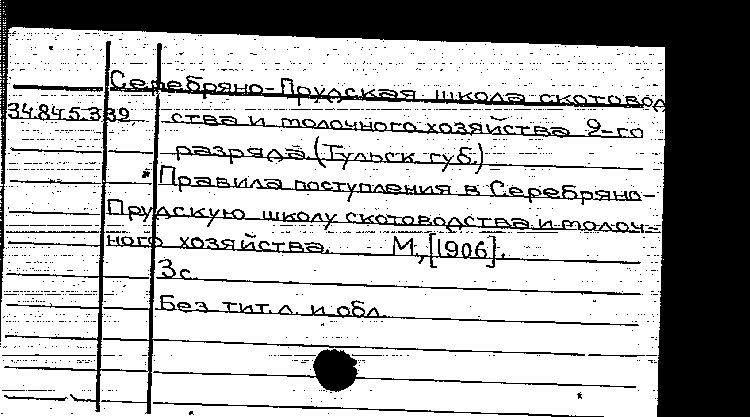 Серебряно-Прудская школа скотовод
34.84.5.339 ства и молочного хозяйства 2-го
разряда (Тульск. губ.)
* Правила поступления в Серебряно-
Прудскую школу скотоводства и молоч-
ного хозяйства. М., [1906].
3 с.
Без тит. л. и обл.